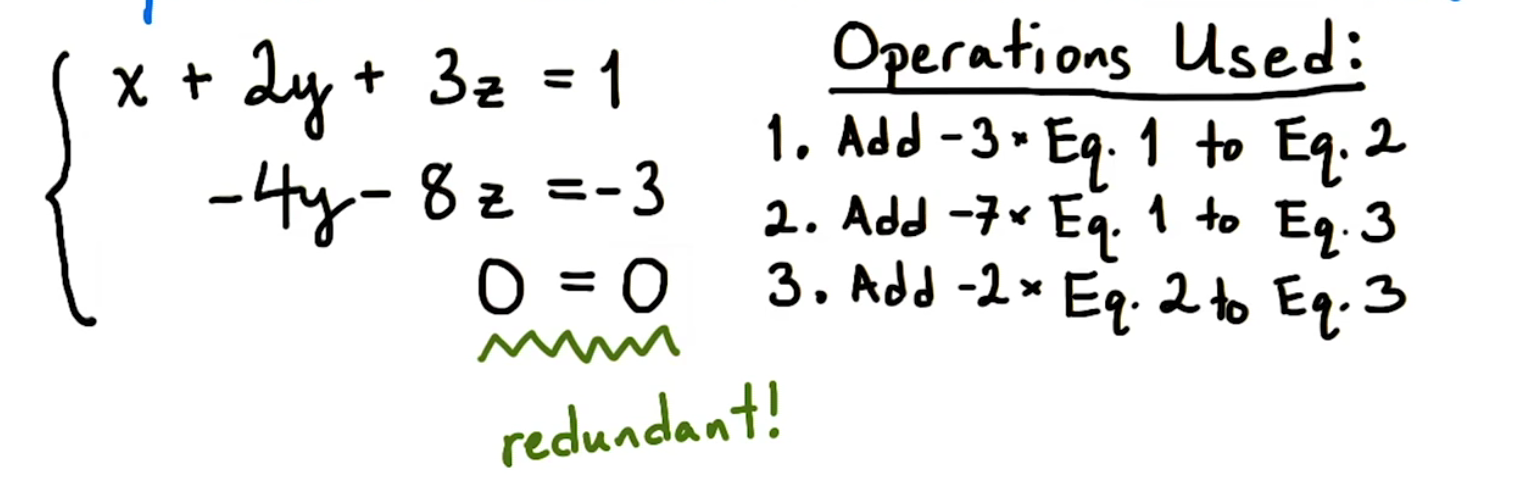 x + 2y + 3z = 1
-4y - 8z = -3
0 = 0
redundant!
Operations Used:
1. Add -3 × Eq. 1 to Eq. 2
2. Add -7 × Eq. 1 to Eq. 3
3. Add -2 × Eq. 2 to Eq. 3